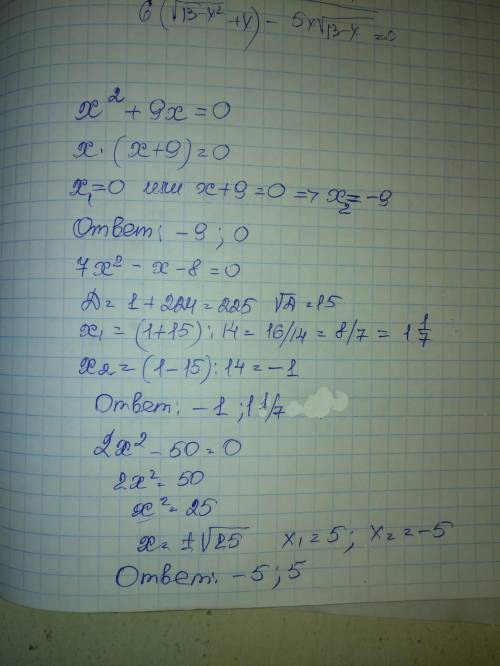 6(√13-y² + y) - 5y√13-y =0
x² + 9x = 0
x·(x+9)=0
x₁=0 или x+9=0 => x₂=-9
Ответ: -9 ; 0
7x² - x - 8 = 0
Д= 1 + 224 = 225 √Д =15
x₁ = (1+15):14 = 16/14 = 8/7 = 1 1/7
x₂ = (1-15):14 = -1
Ответ: -1 ; 1 1/7
2x² - 50 = 0
2x² = 50
x² = 25
x = ±√25 x₁=5; x₂=-5
Ответ: -5 ; 5